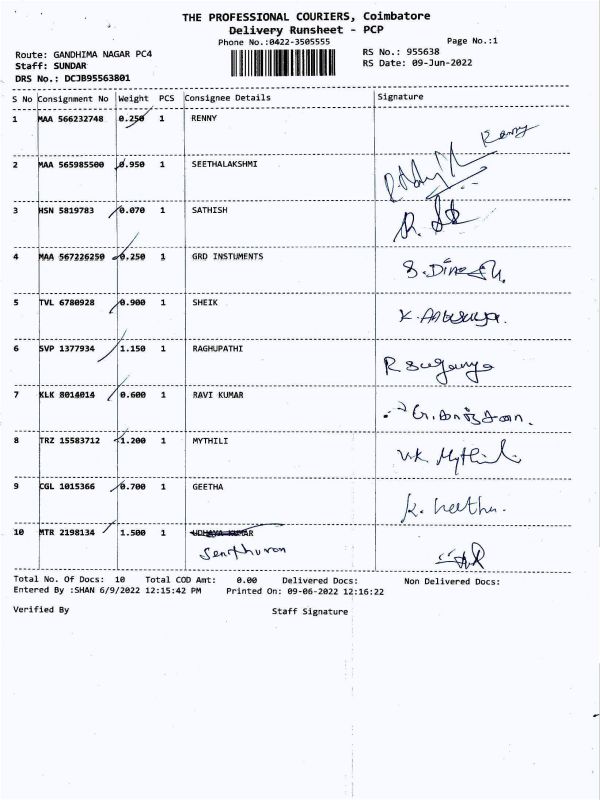 THE PROFESSIONAL COURIERS, Coimbatore
Delivery Runsheet - PCP
Phone No.:0422-3505555
Page No.:1
Route: GANDHIMA NAGAR PC4
RS No.: 955638
Staff: SUNDAR
RS Date: 09-Jun-2022
DRS No.: DCJB95563801
S No Consignment No Weight PCS Consignee Details Signature
1 MAA 566232748 0.250 1 RENNY Renny
2 MAA 565985500 0.950 1 SEETHALAKSHMI
3 HSN 5819783 0.070 1 SATHISH
4 MAA 567226250 0.250 1 GRD INSTUMENTS S.Dinesh.
5 TVL 6780928 0.900 1 SHEIK
6 SVP 1377934 1.150 1 RAGHUPATHI R suganya
7 KLK 8014014 0.600 1 RAVI KUMAR
8 TRZ 15583712 1.200 1 MYTHILI V.K. Mythili
9 CGL 1015366 0.700 1 GEETHA K. heetha.
10 MTR 2198134 1.500 1 UDHAYA KUMAR
Senthuran
Total No. Of Docs: 10 Total COD Amt: 0.00 Delivered Docs: Non Delivered Docs:
Entered By :SHAN 6/9/2022 12:15:42 PM Printed On: 09-06-2022 12:16:22
Verified By Staff Signature